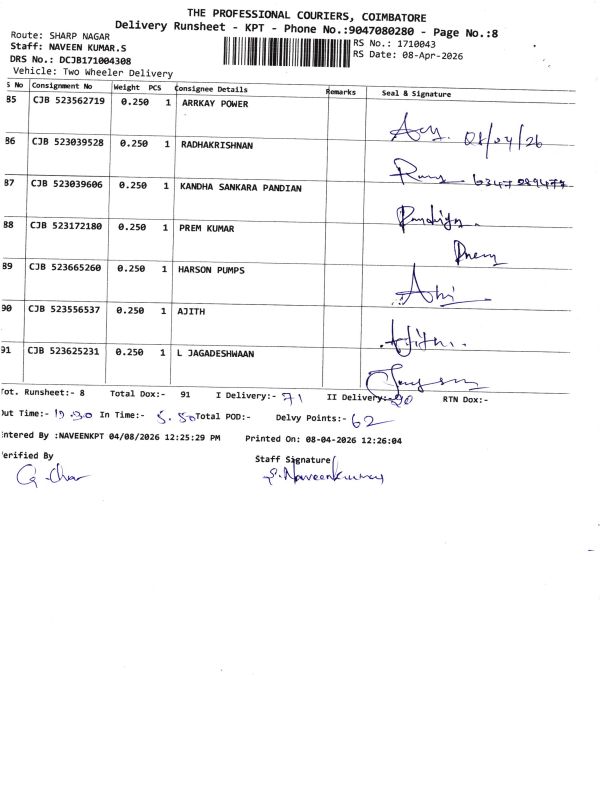 THE PROFESSIONAL COURIERS, COIMBATORE
Delivery Runsheet - KPT - Phone No.:9047080280 - Page No.:8
Route: SHARP NAGAR
RS No.: 1710043
Staff: NAVEEN KUMAR.S
RS Date: 08-Apr-2026
DRS No.: DCJB171004308
Vehicle: Two Wheeler Delivery
S No Consignment No Weight PCS Consignee Details Remarks Seal & Signature
85 CJB 523562719 0.250 1 ARRKAY POWER
08/04/26
86 CJB 523039528 0.250 1 RADHAKRISHNAN
87 CJB 523039606 0.250 1 KANDHA SANKARA PANDIAN
88 CJB 523172180 0.250 1 PREM KUMAR
Prem
89 CJB 523665260 0.250 1 HARSON PUMPS
90 CJB 523556537 0.250 1 AJITH
Ajith.
91 CJB 523625231 0.250 1 L JAGADESHWAAN
Tot. Runsheet:- 8 Total Dox:- 91 I Delivery:- 71 II Delivery:- 20 RTN Dox:-
Out Time:- In Time:- 5.50 Total POD:- Delvy Points:- 62
Entered By :NAVEENKPT 04/08/2026 12:25:29 PM Printed On: 08-04-2026 12:26:04
Verified By Staff Signature
S.Naveenkumar